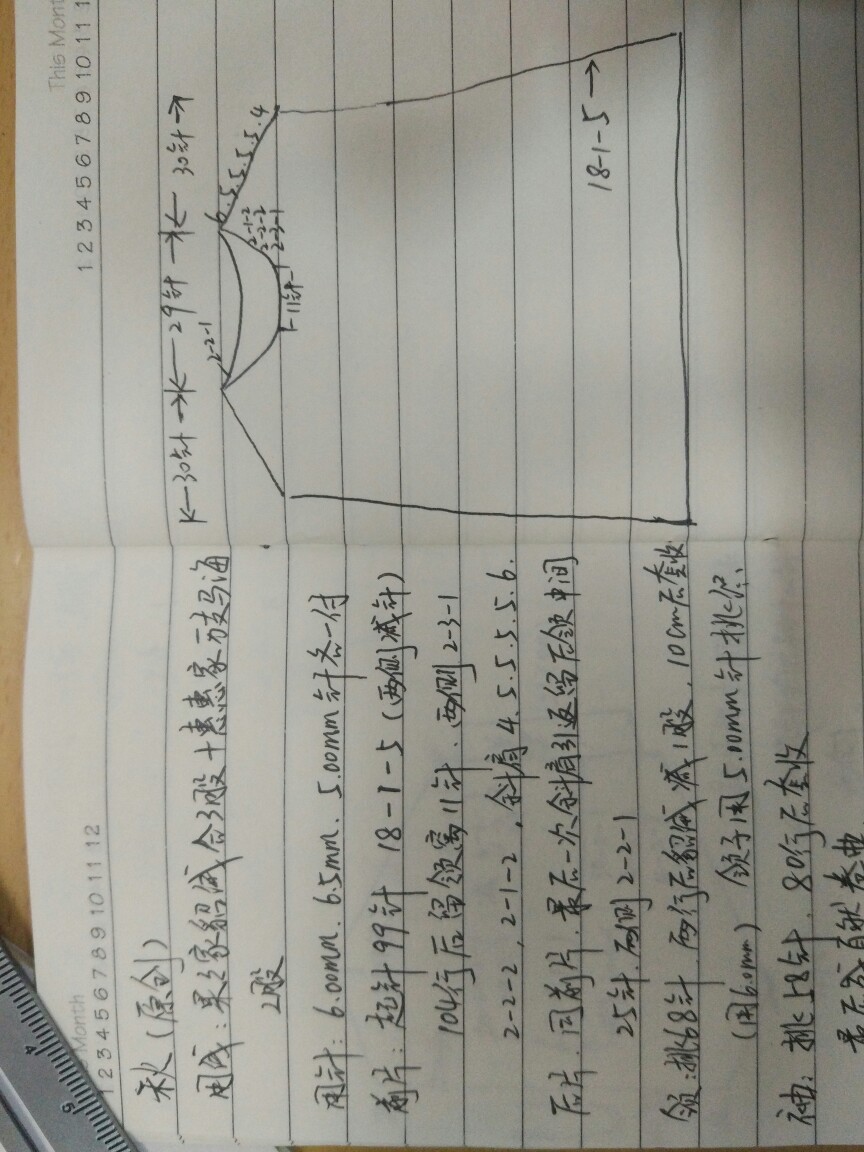 Month
1 2 3 4 5 6 7 8 9 10 11 12
秋(原创)
用线:果果家貂绒合3股+惠惠家一支马海
2股
用针:6.00mm、6.5mm、5.00mm针各一付
前片:起针99针 18-1-5(两侧减针)
104行后留领窝11针、两侧2-3-1
2-2-2、2-1-2,斜肩4.5.5.5.5.6.
后片、同前片、最后一次斜肩引返留后领中间
25针、两侧2-2-1
领:挑68针、两行后貂绒减1股、10cm后套收
(用6.0mm) 领子用5.00mm针挑织、
袖:挑58针、80行后套收
最后成自然卷曲
This Mont
1 2 3 4 5 6 7 8 9 10 11 1
30针 29针 30针
2-2-1
6.5.5.5.5.4
2-1-2
2-2-2
2-3-1
11针
18-1-5